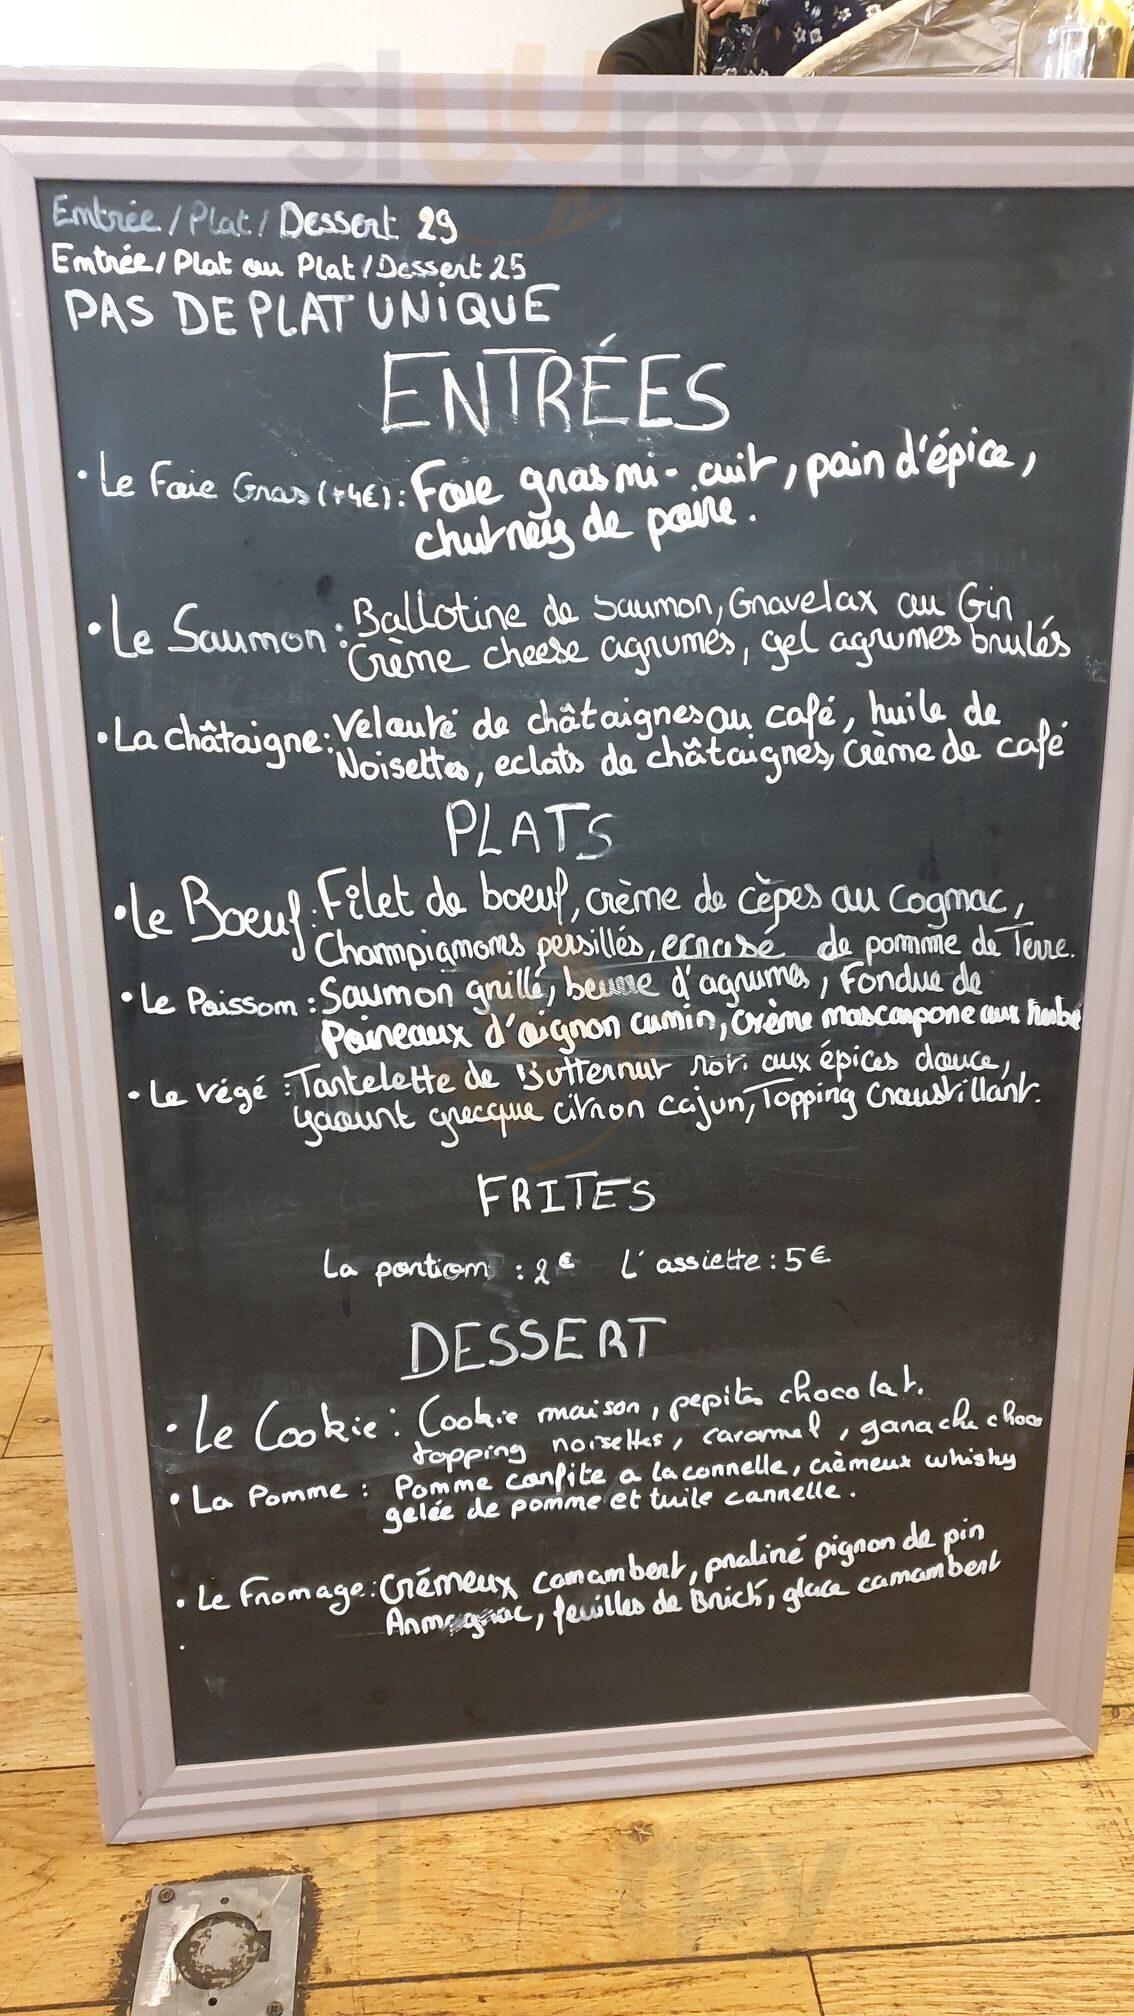 Sluurpy
Entrée / Plat / Dessert 29
Entrée / Plat ou Plat / Dessert 25
PAS DE PLAT UNIQUE
ENTRÉES
• Le Foie Gras (+4€) : Foie gras mi-cuit, pain d'épice,
chutney de poire.
• Le Saumon : Ballotine de saumon, Gravelax au Gin
Crème cheese agrumes, gel agrumes brulés
• La châtaigne : Velouté de châtaignes au café, huile de
Noisettes, eclats de châtaignes, Crème de café
PLATS
• Le Boeuf : Filet de boeuf, crème de cèpes au Cognac,
Champignons persillés, ecrasé de pomme de Terre.
• Le Poisson : Saumon grillé, beurre d'agrumes, Fondue de
Poireaux d'oignon cumin, Crème mascarpone aux herbes
• Le végé : Tartelette de Butternut roti aux épices douce,
yaourt grecque citron cajun, Topping Croustillant.
FRITES
La portion : 2€ L'assiette : 5€
DESSERT
• Le Cookie : Cookie maison, pepites chocolat.
topping noisettes, caramel, ganache choco
• La Pomme : Pomme confite a la connelle, crèmeux whisky
gelée de pomme et tuile cannelle.
• Le Fromage : Crémeux camambert, praliné pignon de pin
Armagnac, feuilles de Brick, glace camambert
Sluurpy